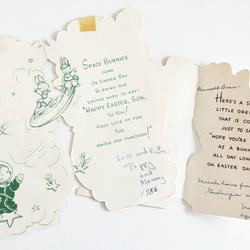 SPACE BUNNIES
COME
ON EASTER DAY
TO BRING THIS
LOVING WISH TO SAY:
"HAPPY EASTER, SON,
TO YOU!
HAVE LOTS OF FUN
THE
WHOLE DAY THROUGH!"
Love and Kisses
Pappy
and
Mommy
HERE'S A
LITTLE GREE
THAT IS CO
JUST TO SA
"HOPE YOU'RE
AS A BUNN
ALL DAY LON
ON EASTER DA